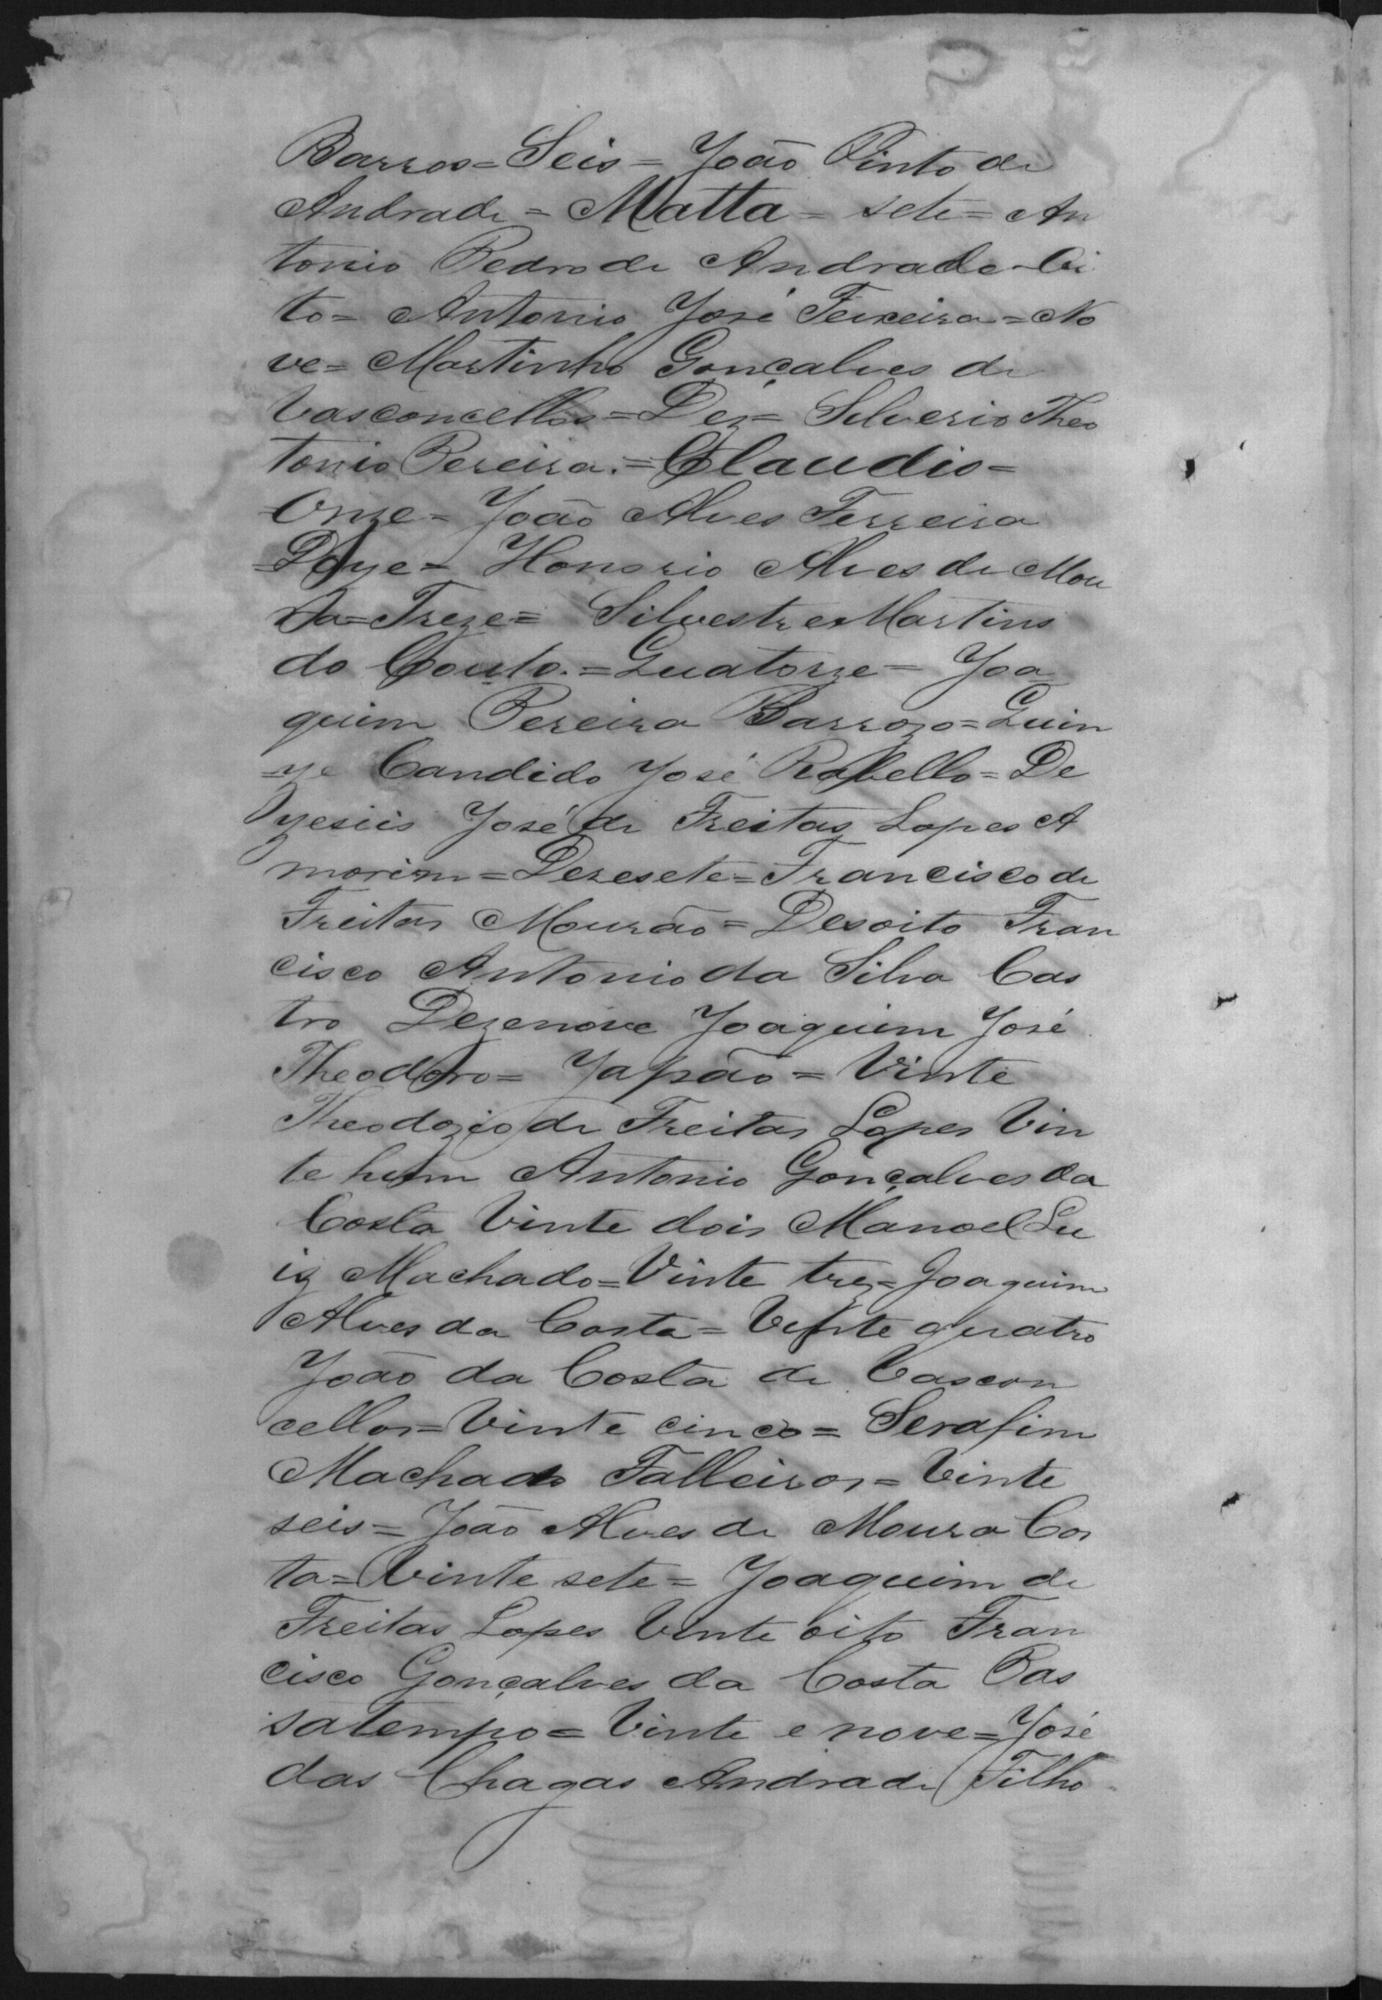 Barros = Seis = João Pinto de
Andrade = Matta = sete = An
tonio Pedro de Andrade Oi
to = Antonio José Teixeira = No
ve = Martinho Gonçalves de
Vasconcellos = Dez = Silverio Theo
tonio Pereira. = Claudio =
Onze = João Alves Ferreira
Doze = Honorio Alves de Mou
ra = Treze = Silvestre Martins
do Couto. = Quatorze = Joa
quim Pereira Barrozo = Quin
ze Candido José Rabello = De
zeseis José de Freitas Lopes A
morim = Dezesete = Francisco de
Freitas Mourão = Desoito Fran
cisco Antonio da Silva Cas
tro Dezenove Joaquim José
Theodoro = Japão = Vinte
Theodozio de Freitas Lopes Vin
te hum Antonio Gonçalves da
Costa Vinte dois Manoel Lu
iz Machado = Vinte trez = Joaquim
Alves da Costa = Vinte quatro
João da Costa de Vascon
cellos = Vinte cinco = Serafim
Machado Falleiros = Vinte
seis = João Alves de Moura Cos
ta = Vinte sete = Joaquim de
Freitas Lopes Vinte oito Fran
cisco Gonçalves da Costa Pas
satempo = Vinte e nove = José
das Chagas Andrade Filho